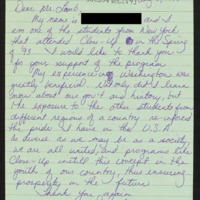 Dear Mr. Lamb,
My name is and I
am one of the students from New York
that attended Close-Up in the Spring
of '93. I would like to thank you
for your support of the program.
My experience in Washington was
greatly beneficial. Not only did I learn
more about our gov't and history, but
the exposure to the other students from
different regions of a country re-inforced
the pride I have in the U.S.A.
As diverse as we may be as a society,
we are all united, and programs like
Close-Up instill this concept in the
youth of our country, thus insuring
prosperity in the future.
Thank you, again